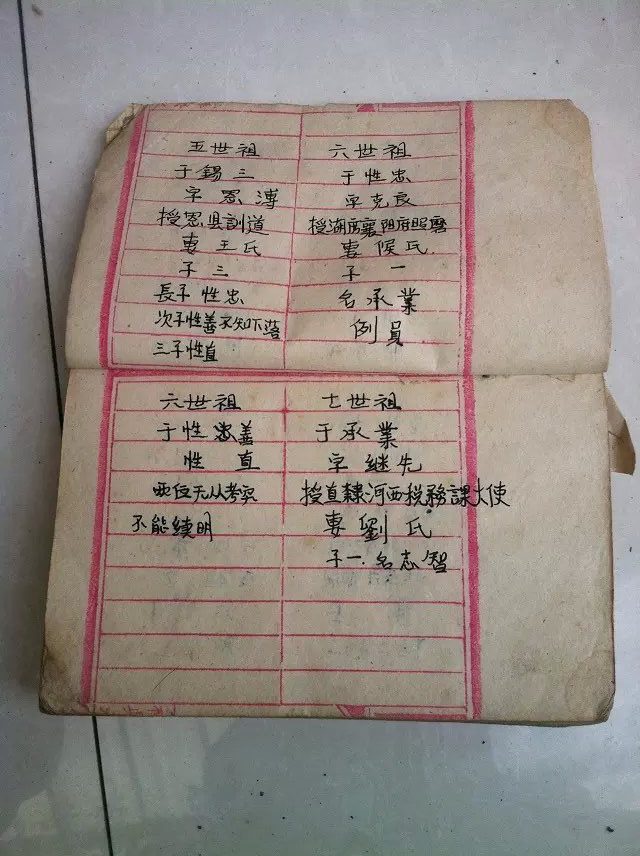 五世祖
于錫三
字恩溥
授恩县訓道
妻王氏
子三
長子性忠
次子性善不知下落
三子性直
六世祖
于性忠
字克良
授湖広襄阳府照磨
妻侯氏
子一
名承業
例員
六世祖
于性善
性直
两位无从考究
不能續明
七世祖
于承業
字继先
授直隸河西税務課大使
妻劉氏
子一.名志智